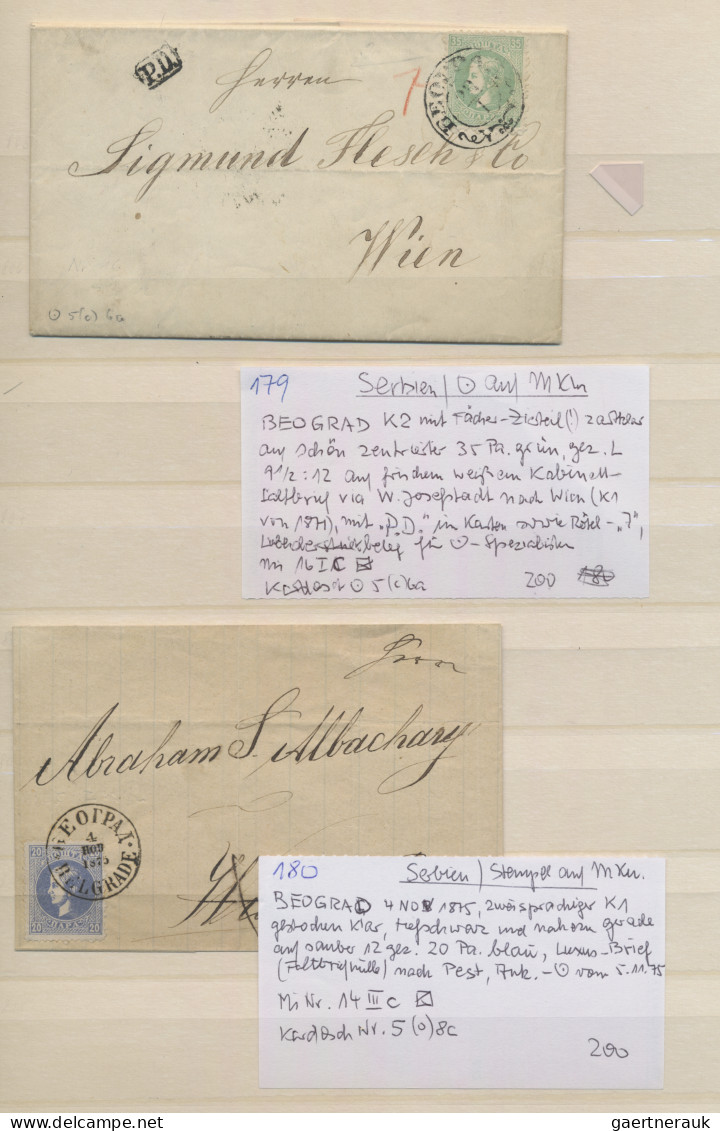 P.D.
Herren
7
35 35
Sigmund Flesch & Co
Wien
5(c) 6a
179 Serbien / ⊙ auf MKW
BEOGRAD K2 mit Fächer-Zierteil (!)
auf schön zentrierter 35 Pa. grün, gez. L
9 1/2 : 12 auf frischem weißem Kabinett-
Faltbrief via W. Josefstadt nach Wien (K1
von 1871), mit „P.D." in Kasten sowie Rötel-„7",
für ⊙-Spezialisten
16 I C ✉
Kardosch ⊙ 5(c)6a 200 180
Herrn
Abraham S. Albachary
БЕОГРАД
4
НОВ
1875
BELGRADE
20 20
20 ПАРА 20
180 Serbien / Stempel auf MKW.
BEOGRAD 4 NOV 1875, zweisprachiger K1
gestochen klar, tiefschwarz und nahezu gerade
auf sauber 12 gez. 20 Pa. blau, Luxus-Brief
(Faltbriefhülle) nach Pest, Ank.-⊙ vom 5.11.75
Mi Nr. 14 III C ✉
Kardosch Nr. 5 (o) 8c
200
gaertnerauk